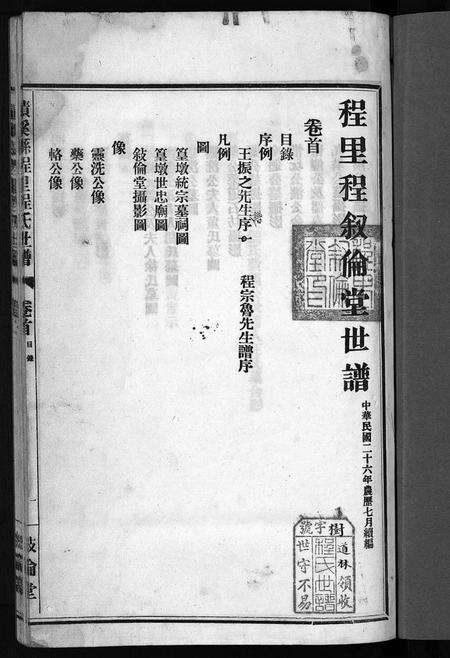 程里程叙倫堂世譜
中華民國二十六年農歷七月續編
卷首
目錄
序例
王振之先生序
程宗魯先生譜序
凡例
圖
篁墩統宗墓祠圖
篁墩世忠廟圖
敍倫堂攝影圖
像
靈洗公像
藥公像
恪公像
績溪縣程里程氏世譜
卷首
目錄
一
敍倫堂
樹字號
道林領收
程氏世譜
世守不易